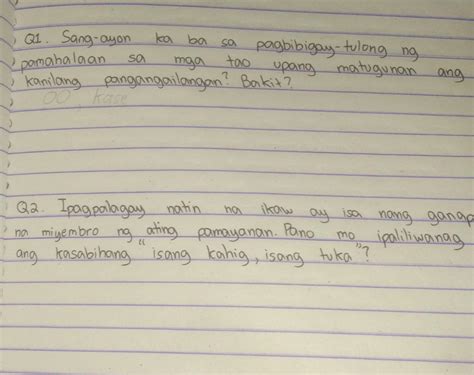 Q1. Sang-ayon ka ba sa pagbibigay-tulong ng
pamahalaan sa mga tao upang matugunan ang
kanilang pangangailangan? Bakit?
OO, kase
Q2. Ipagpalagay natin na ikaw ay isa nang ganap
na miyembro ng ating pamayanan. Pano mo ipaliliwanag
ang kasabihang "isang kahig, isang tuka"?